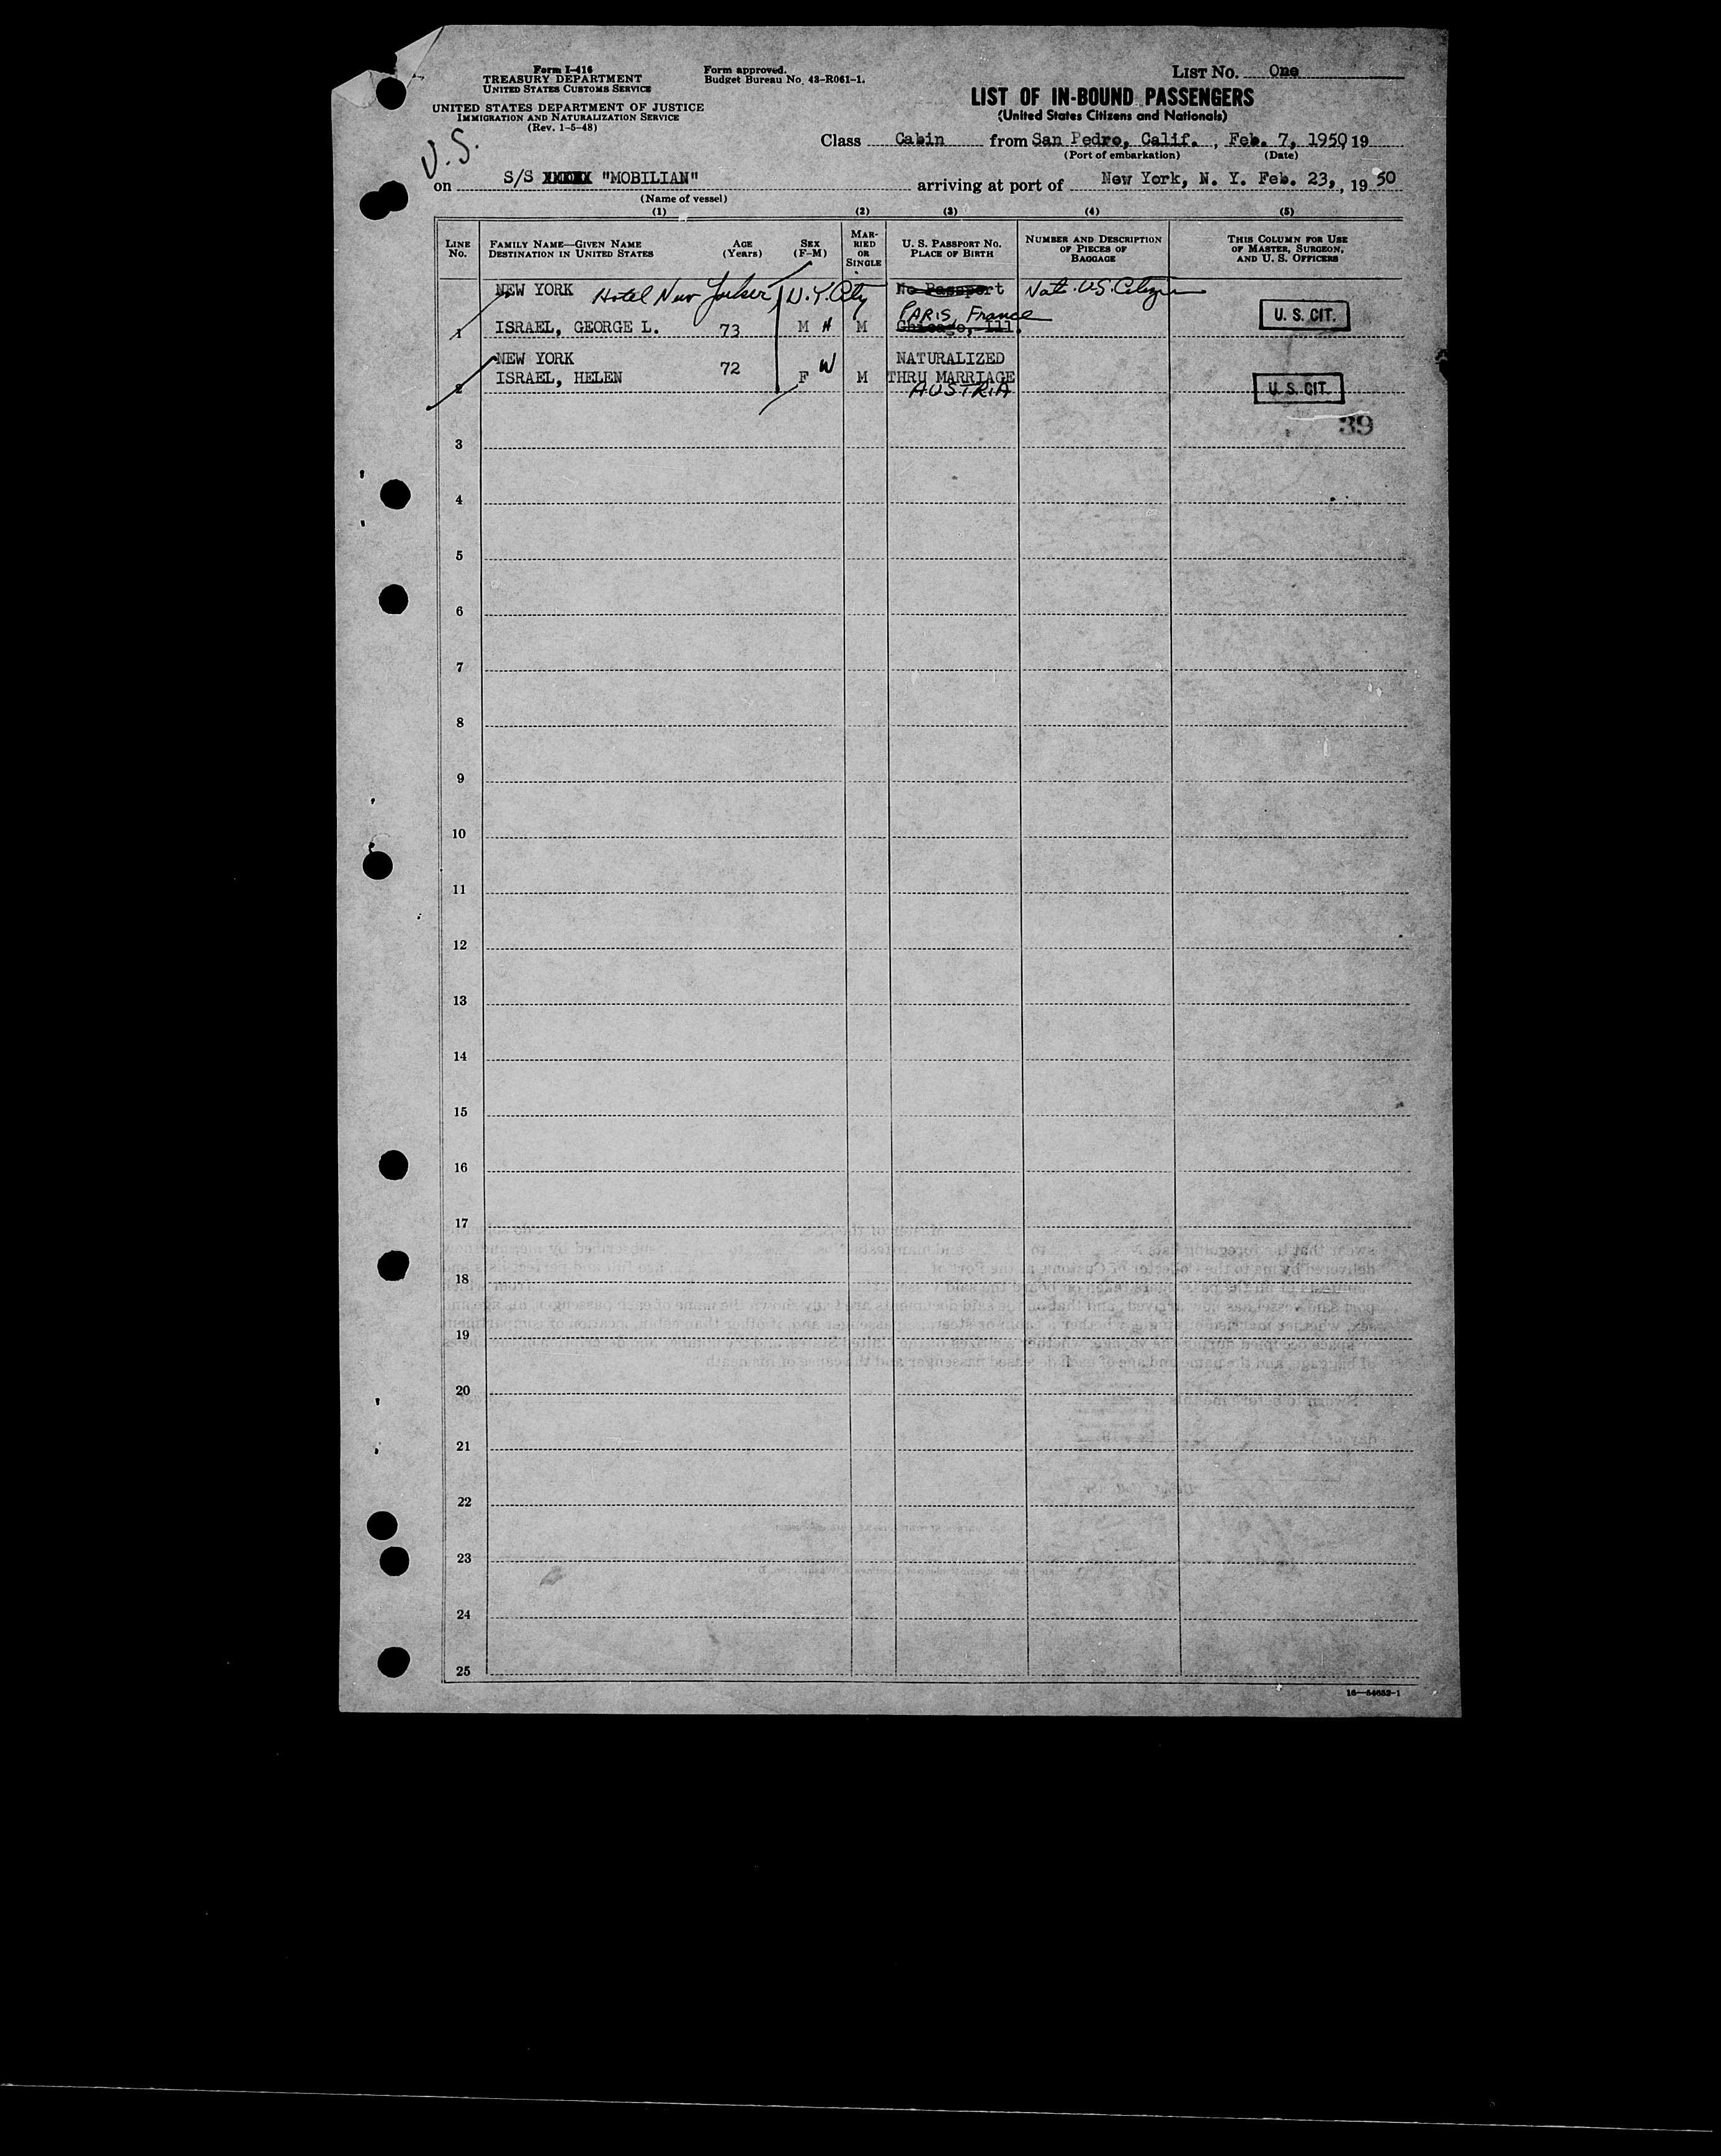 Form I-416
TREASURY DEPARTMENT
UNITED STATES CUSTOMS SERVICE
UNITED STATES DEPARTMENT OF JUSTICE
IMMIGRATION AND NATURALIZATION SERVICE
(Rev. 1-5-48)
Form approved.
Budget Bureau No. 43-R061-1.
LIST NO. One
LIST OF IN-BOUND PASSENGERS
(United States Citizens and Nationals)
U.S.
Class Cabin from San Pedro, Calif., Feb. 7, 1950 19
(Port of embarkation) (Date)
on S/S "MOBILIAN" arriving at port of New York, N. Y. Feb. 23, , 19 50
(Name of vessel)
(1) (2) (3) (4) (5)
LINE NO.
FAMILY NAME—GIVEN NAME
DESTINATION IN UNITED STATES
AGE
(Years)
SEX
(F-M)
MAR-
RIED
OR
SINGLE
U. S. PASSPORT NO.
PLACE OF BIRTH
NUMBER AND DESCRIPTION
OF PIECES OF
BAGGAGE
THIS COLUMN FOR USE
OF MASTER, SURGEON,
AND U. S. OFFICERS
NEW YORK Hotel New Yorker, N.Y. City No Passport Nat. U.S. Citizen
PARIS, France
1 ISRAEL, GEORGE L. 73 M H M Chicago, Ill. U. S. CIT.
NEW YORK 72 W NATURALIZED
ISRAEL, HELEN F M THRU MARRIAGE
2 AUSTRIA U. S. CIT.
39
3
4
5
6
7
8
9
10
11
12
13
14
15
16
17
18
19
20
21
22
23
24
25
16—54652-1